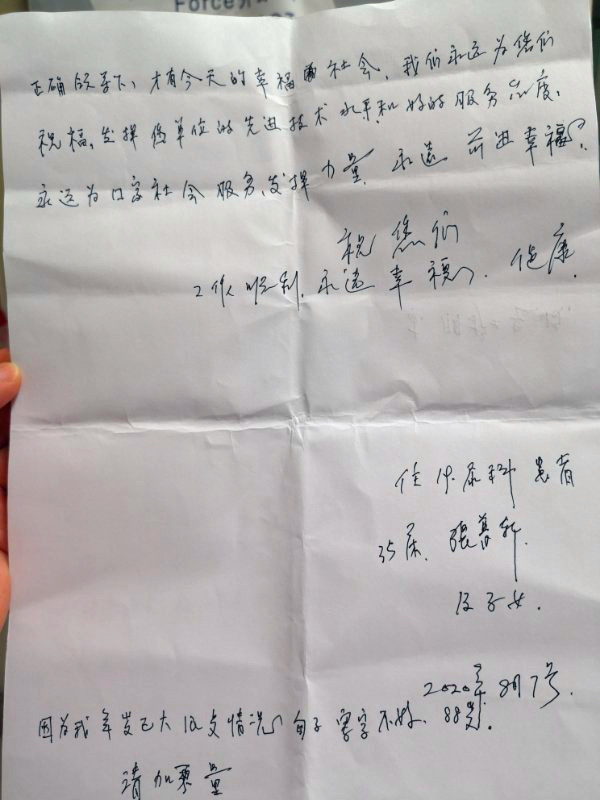 Force
正确领导下，才有今天的幸福社会，我们永远为您们
祝福，发挥你单位的先进技术水平和好的服务态度，
永远为口家社会服务，发挥力量，永远前进幸福。
祝您们
工作顺利，永远幸福，健康
住 科患者
35床，張
及子女。
2020年8月7号。
因为我年岁已大 情况 句子写字不好，88岁。
请加 量